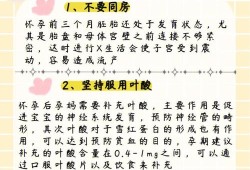 1、不要同房
怀孕前三个月胚胎还处于发育状态，尤
其是胎盘和母体宫壁之前连接不够紧
密，这时进行X生活会使子宫受到震
动，容易造成流产
2、坚持服用叶酸
怀孕后孕妈需要补充叶酸，主要作用是促
进宝宝的神经系统发育，预防神经管的畸
形，其次叶酸对于雪红蛋白的形成也有作
用，可以达到预防贫血的目的，孕期建议
补充的叶酸含量在0.4-1mg之间，可以通
过口服叶酸片以及饮食来补充